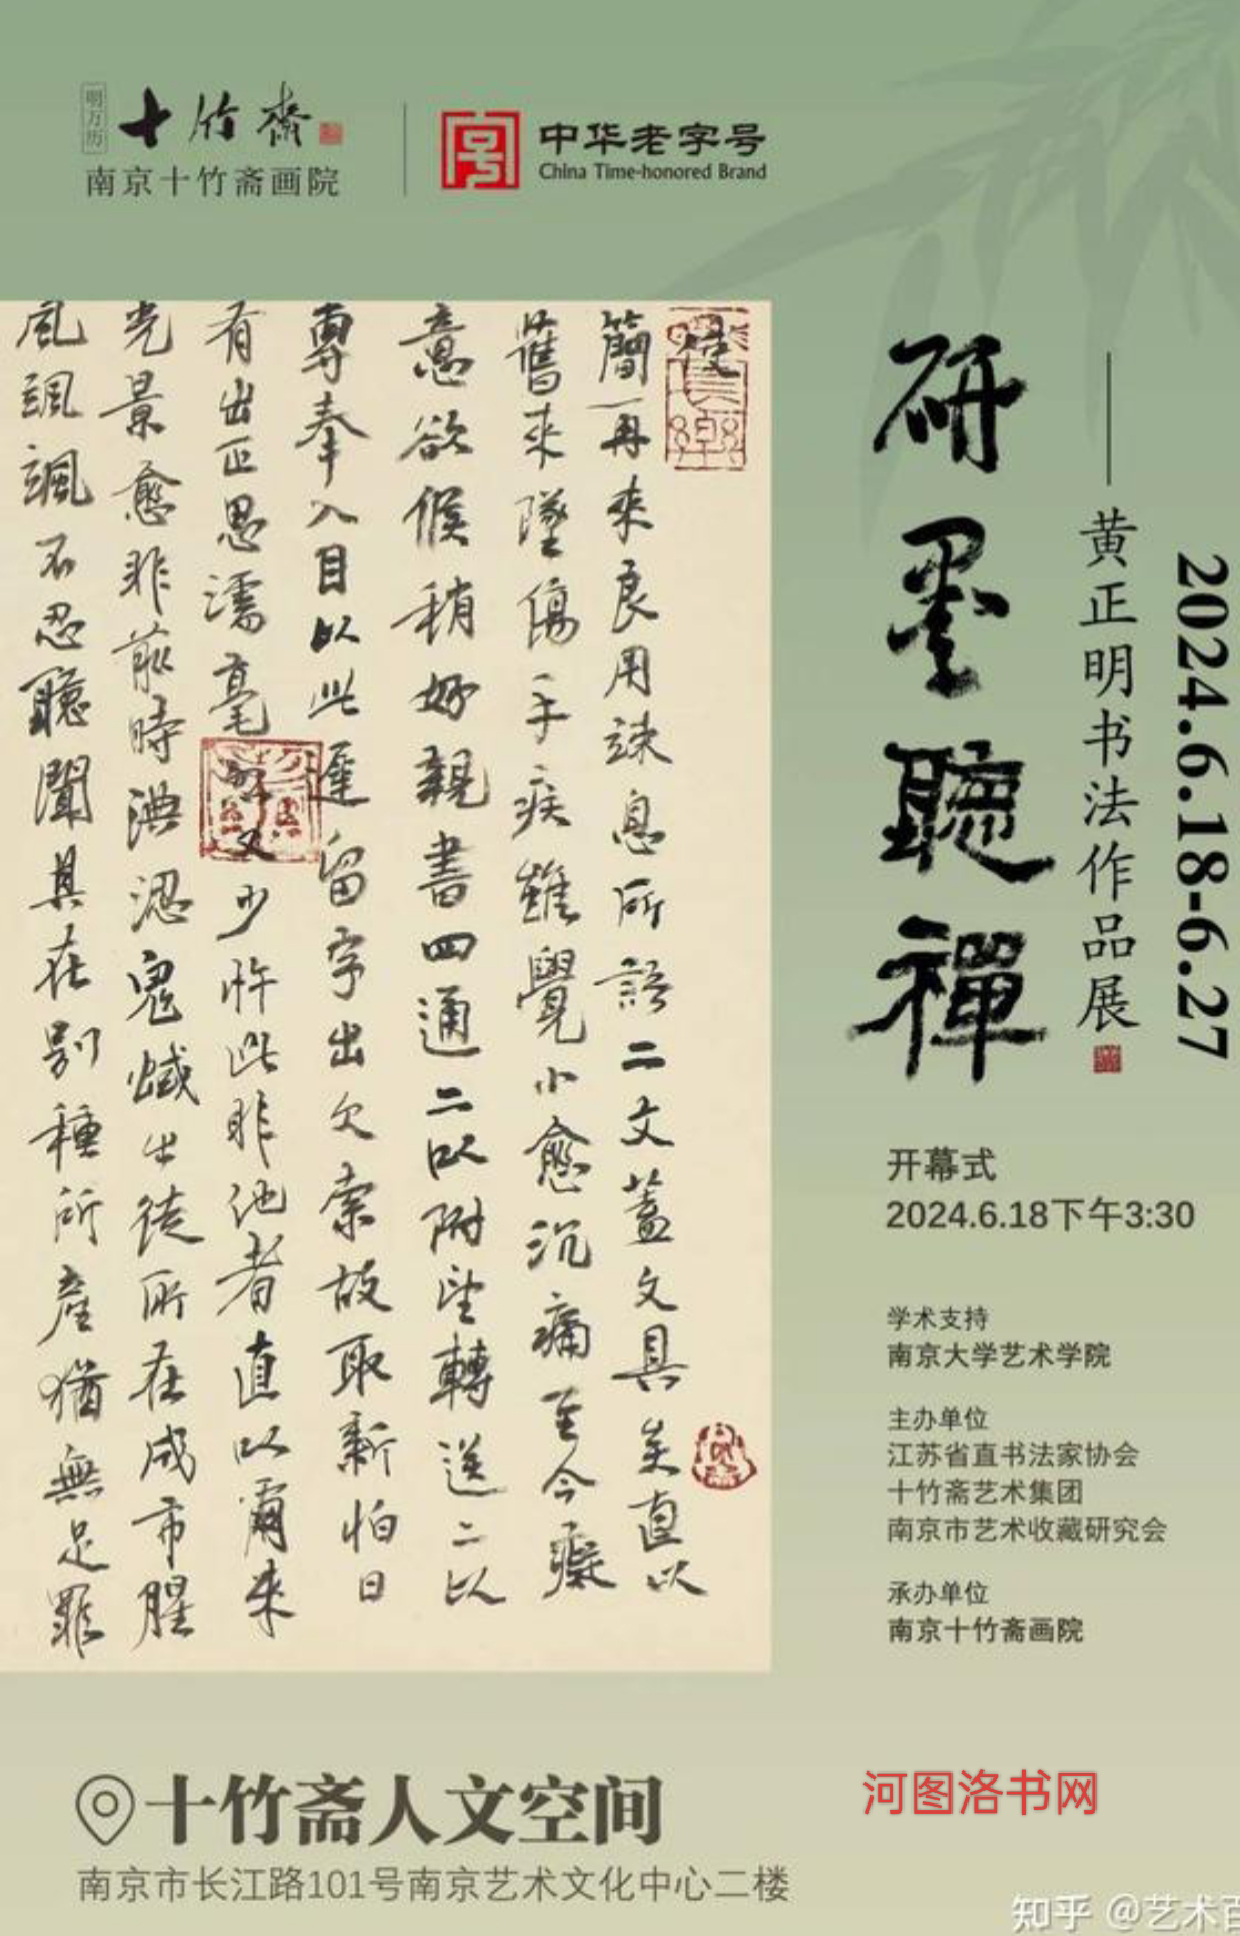 明万历
十竹斋
南京十竹斋画院
中华老字号
China Time-honored Brand
研墨聽禪
——黄正明书法作品展
2024.6.18-6.27
簡一再來良用竦息所諭二文蓋文具矣直以
舊來墜傷手疾雖覺小愈沉痛至今癡
意欲候稍好親書四通二以附望轉送二以
專奉入目以此遲留字出欠索故取新怕日
有出正思濡毫又少忤此非他者直以爾來
光景愈非前時澳涊鬼蜮出徒所在成市腥
風颯颯不忍聽聞真在别種所產猶無足罪
开幕式
2024.6.18下午3:30
学术支持
南京大学艺术学院
主办单位
江苏省直书法家协会
十竹斋艺术集团
南京市艺术收藏研究会
承办单位
南京十竹斋画院
十竹斋人文空间
南京市长江路101号南京艺术文化中心二楼
河图洛书网
知乎 @艺术百